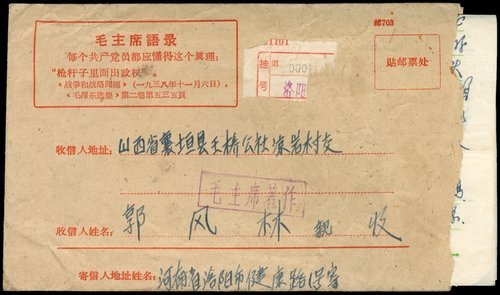 邮703
毛主席語录
每个共产党员都应懂得这个真理：
“枪杆子里面出政权”。
《战争和战略問題》（一九三八年十一月六日），
《毛澤东选集》第二卷第五三五頁
1101
挂号 第 0001
洛阳
貼邮票处
收信人地址：山西省襄垣县王桥公社凉岩村交
毛主席著作
收信人姓名：郭风林 親 收
寄信人地址姓名：河南省洛阳市健康路